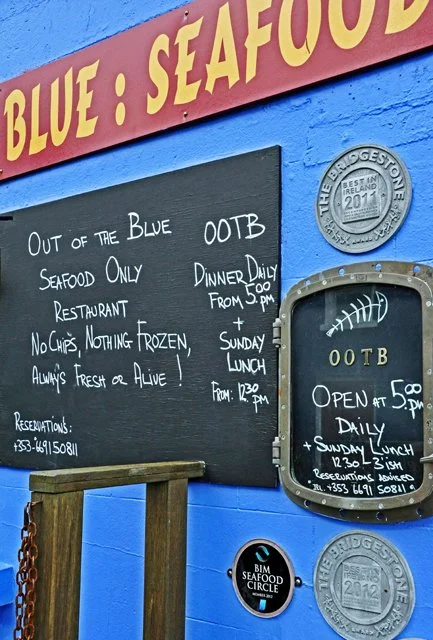 BLUE : SEAFOOD
OUT OF THE BLUE
SEAFOOD ONLY
RESTAURANT
NO CHIPS, NOTHING FROZEN,
ALWAYS FRESH OR ALIVE !
RESERVATIONS:
+353-6691 50811
OOTB
DINNER DAILY
FROM 5:00 pm
+
SUNDAY
LUNCH
FROM: 12:30 pm
THE BRIDGESTONE
BEST IN
IRELAND
2011
OOTB
OPEN AT 5:00 pm
DAILY
+ SUNDAY LUNCH
12 30 - 3 ISH
RESERVATIONS ADVISED
TEL. +353 6691 50811
BIM
SEAFOOD
CIRCLE
MEMBER 2012
THE BRIDGESTONE
BEST IN
IRELAND
2012